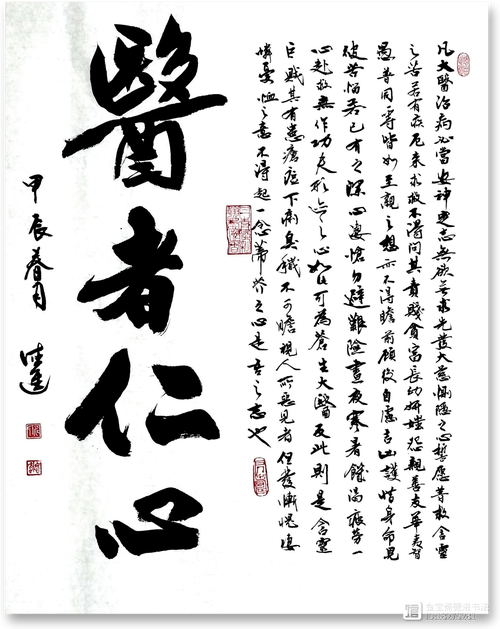 凡大醫治病必當安神定志無欲無求先發大慈惻隱之心誓愿普救含靈
之苦若有疾厄来求救不得問其貴賤貧富長幼妍媸怨親善友華夷智
愚普同一等皆如至親之想亦不得瞻前顧後自慮吉凶護惜身命見
彼苦惱若己有之深心凄愴勿避難險晝夜寒暑饑渴疲勞一
心赴救無作功夫形迹之心如此可為蒼生大醫反此則是含靈
巨賊其有患瘡痍下痢臭穢不可瞻視人所惡見者但發慚愧凄
憐憂恤之意不得起一念蒂芥之心是吾之志也
醫者仁心
甲辰春月